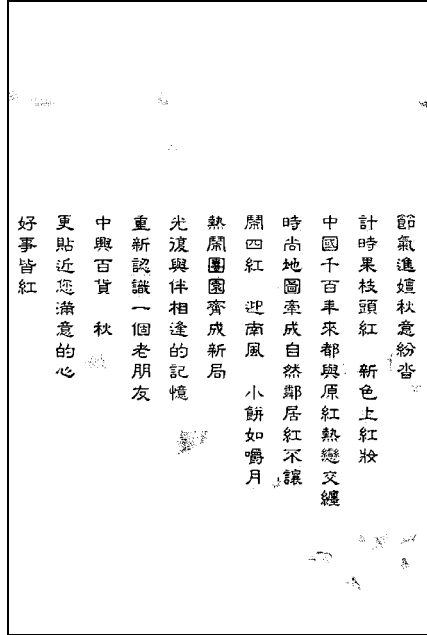 節氣進嬗秋意紛沓
計時果枝頭紅　新色上紅妝
中國千百年來都與原紅熱戀交纏
時尚地圖牽成自然鄰居紅不讓
鬧四紅　迎南風　小餅如嚼月
熱鬧團圓齊成新局
光復與伴相逢的記憶
重新認識一個老朋友
中興百貨　秋
更貼近您滿意的心
好事皆紅